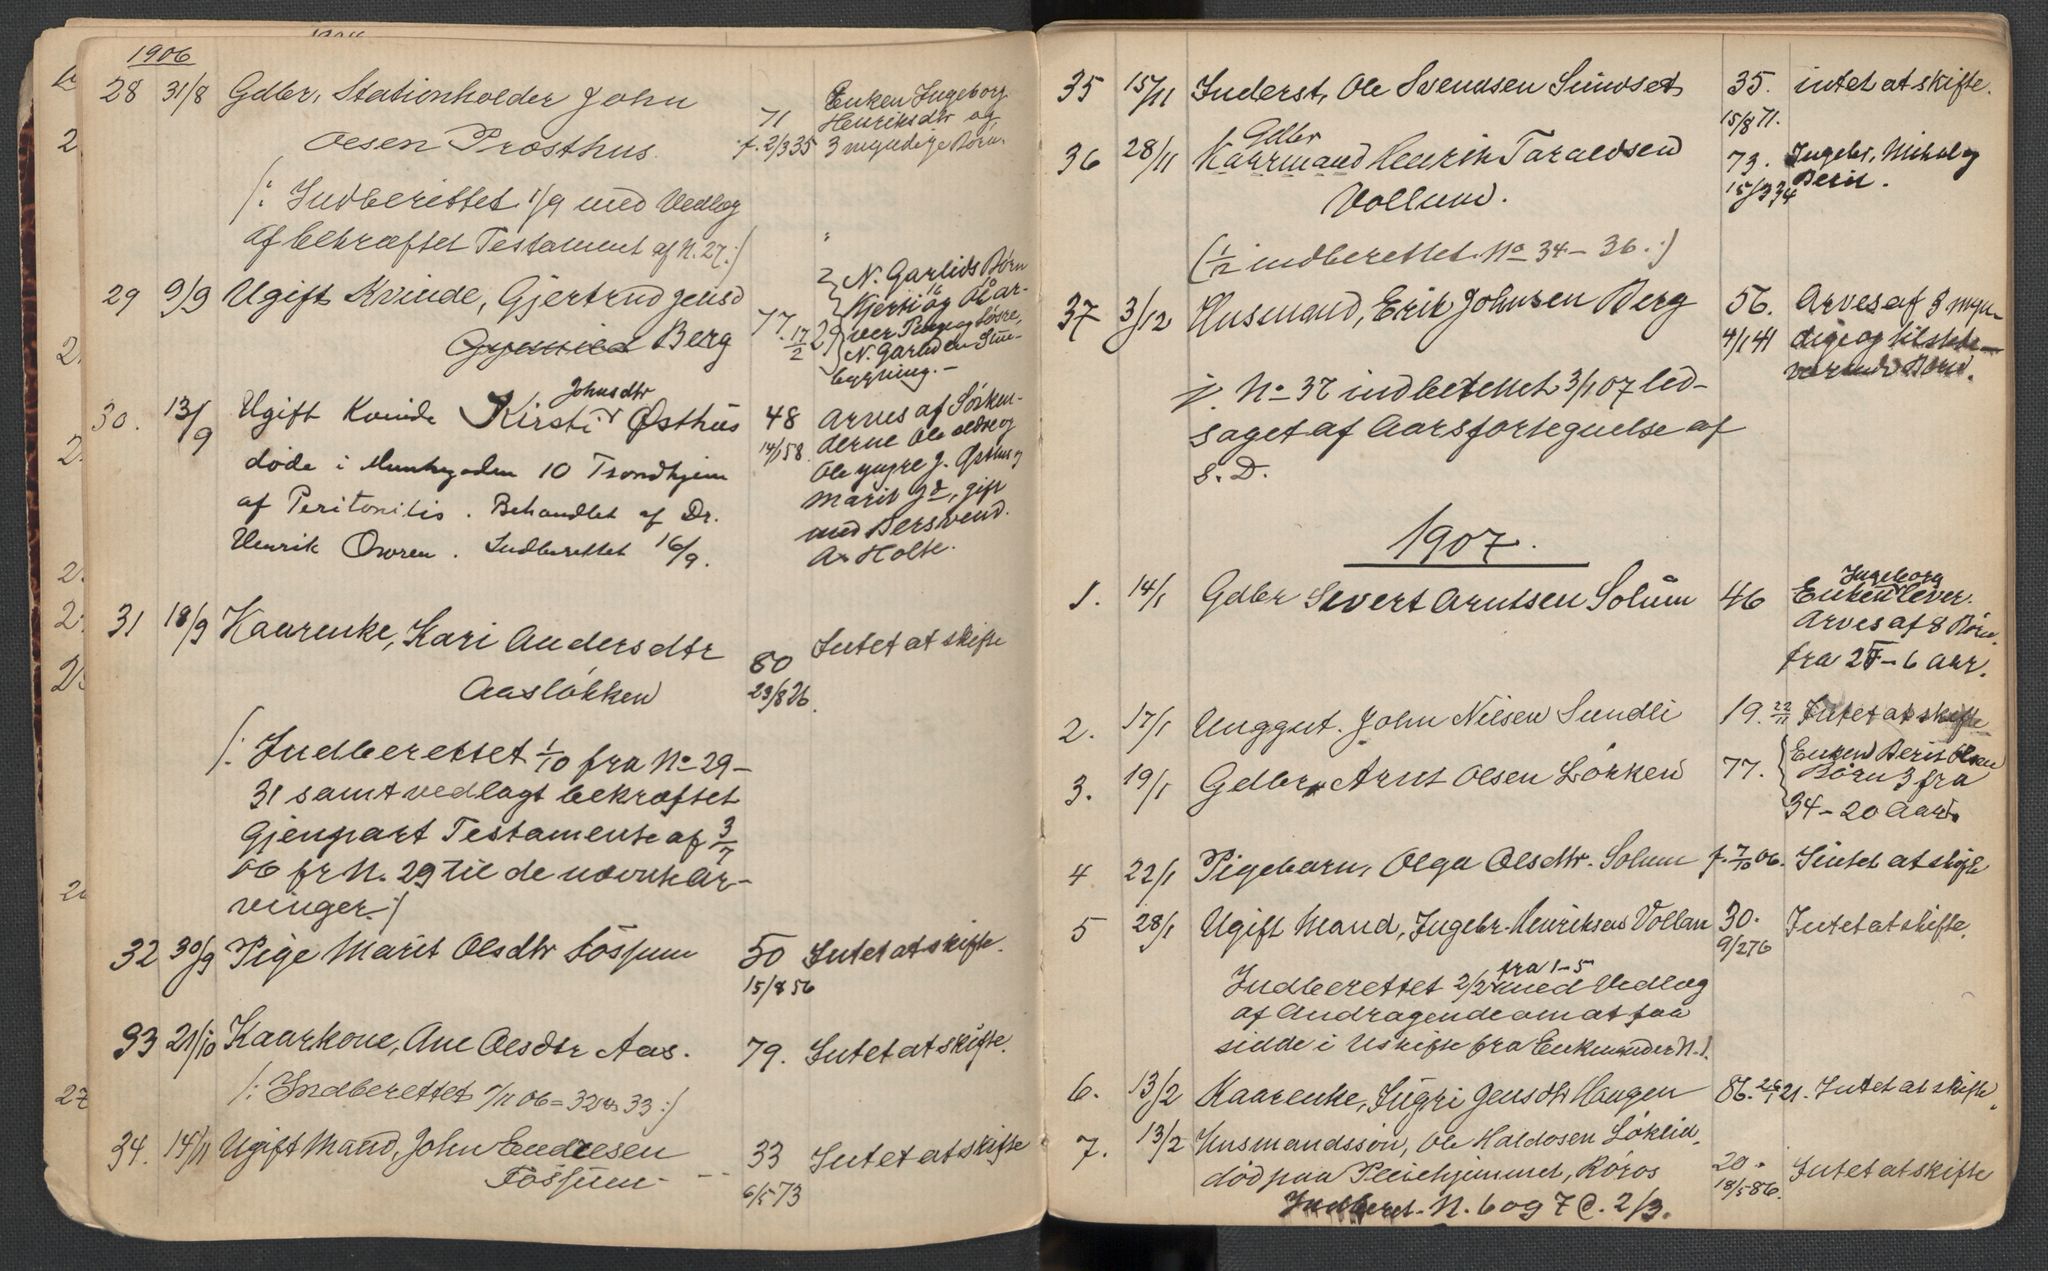 1906
28 31/8 Gdbr. Stationholder John
Olsen Prosthus. 71
f. 2/3 35
Enken Ingeborg
Henriksdtr og
3 myndige Børn.
/: Indberettet 1/9 med Vedlæg
af bekræftet Testament af N. 27. :/
29 9/9 Ugift Kvinde, Gjertrud Jensd
Berg 77. 17/2 29
2 N. Garlids Børn
Kjersti og Ol ar-
ver Penge og Løsøre,
N. Garlid en Stue-
bygning. -
30. 13/9 Ugift Kvinde Kirsti Johnsdtr Østhus
døde i Munkegaden 10 Trondhjem
af Peritonitis. Behandlet af Dr.
Henrik Owren. Indberettet 16/9.
48
14/1 58.
Arves af Søsken-
derne Ole ældre og
Ole yngre J. Østhus og
Marit Jd, gift
med Bersvend
A. Holte.
31 18/9 Kaarenke, Kari Andersdtr
Aasløkken 80
29/8 26.
Intet at skifte
/: Indberettet 1/10 fra No 29-
31 samt vedlagt bekræftet
Gjenpart Testamente af 3/7
06 fr N. 29 til de nævnte Ar-
vinger. :/
32 30/9 Pige Marit Olsdtr Fossum 50 Intet at skifte.
15/8 56
33 21/10 Kaarkone, Ane Olsdtr Aas. 79. Intet at skifte.
/: Indberettet 1/11 06 = 32 og 33 :/
34. 14/11 Ugift Mand, John Endresen
Fossum - 33 Intet at skifte
6/5 73
35 15/11 Inderst, Ole Svendsen Sundset 35. intet at skifte.
15/8 71.
36 28/11 Gdbr
Kaarmand Henrik Taraldsen
Vollan. 73.
15/3 34
Ingebr., Mikal og
Berit.
(1/12 indberettet No 34 - 36. :)
37 3/12 Husmand, Erik Johnsen Berg 56.
4/1 41
Arves af 8 myn-
dige og tilstede-
værende Børn.
No 37 indberettet 3/1 07 led-
saget af Aarsfortegnelse af
s. D.
1907.
1. 14/1 Gdbr Sivert Arntsen Solum 46
Ingeborg
Enken lever.
Arves af 8 Børn
fra 2 - 6 aar.
2. 17/1 Unggut. John Nilsen Sundli 19. 22/11 Intet at skifte
3. 19/1 Gdbr. Arnt Olsen Løkken 77.
Enken Berit Olsen
Børn 3 fra
34 - 20 Aar.
4 22/1 Pigebarn, Olga Olsdtr. Solum f. 7/10 06. Intet at skifte
5 28/1 Ugift Mand, Ingebr. Henriksen Vollan 30. Intet at skifte.
9/2 76
Indberettet 2/2 fra 1-5 med Vedlæg
af Andragende om at faa
sidde i Uskifte fra Enken under N. 1.
6. 13/2 Kaarenke, Ingri Jensdtr Haugen 86. 26/1 21. Intet at skifte.
7. 13/2 Husmandssøn, Ole Haldosen Løklid,
død paa Pleiehjemmet, Røros 20. Intet at skifte
18/5 86.
Indberet. N. 6 og 7 2/3.